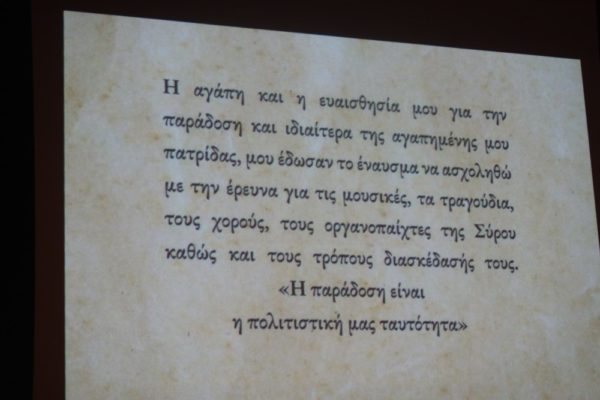 Η αγάπη και η ευαισθησία μου για την
παράδοση και ιδιαίτερα της αγαπημένης μου
πατρίδας, μου έδωσαν το έναυσμα να ασχοληθώ
με την έρευνα για τις μουσικές, τα τραγούδια,
τους χορούς, τους οργανοπαίχτες της Σύρου
καθώς και τους τρόπους διασκέδασής τους.
«Η παράδοση είναι
η πολιτιστική μας ταυτότητα»